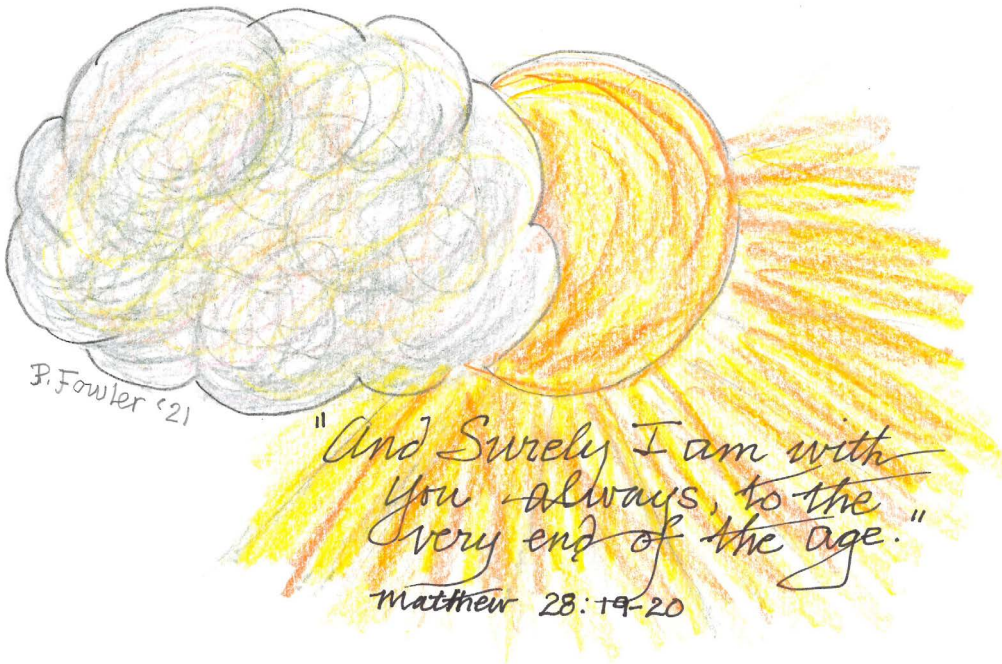 P. Fowler '21
"And Surely I am with
you always, to the
very end of the age."
Matthew 28:19-20